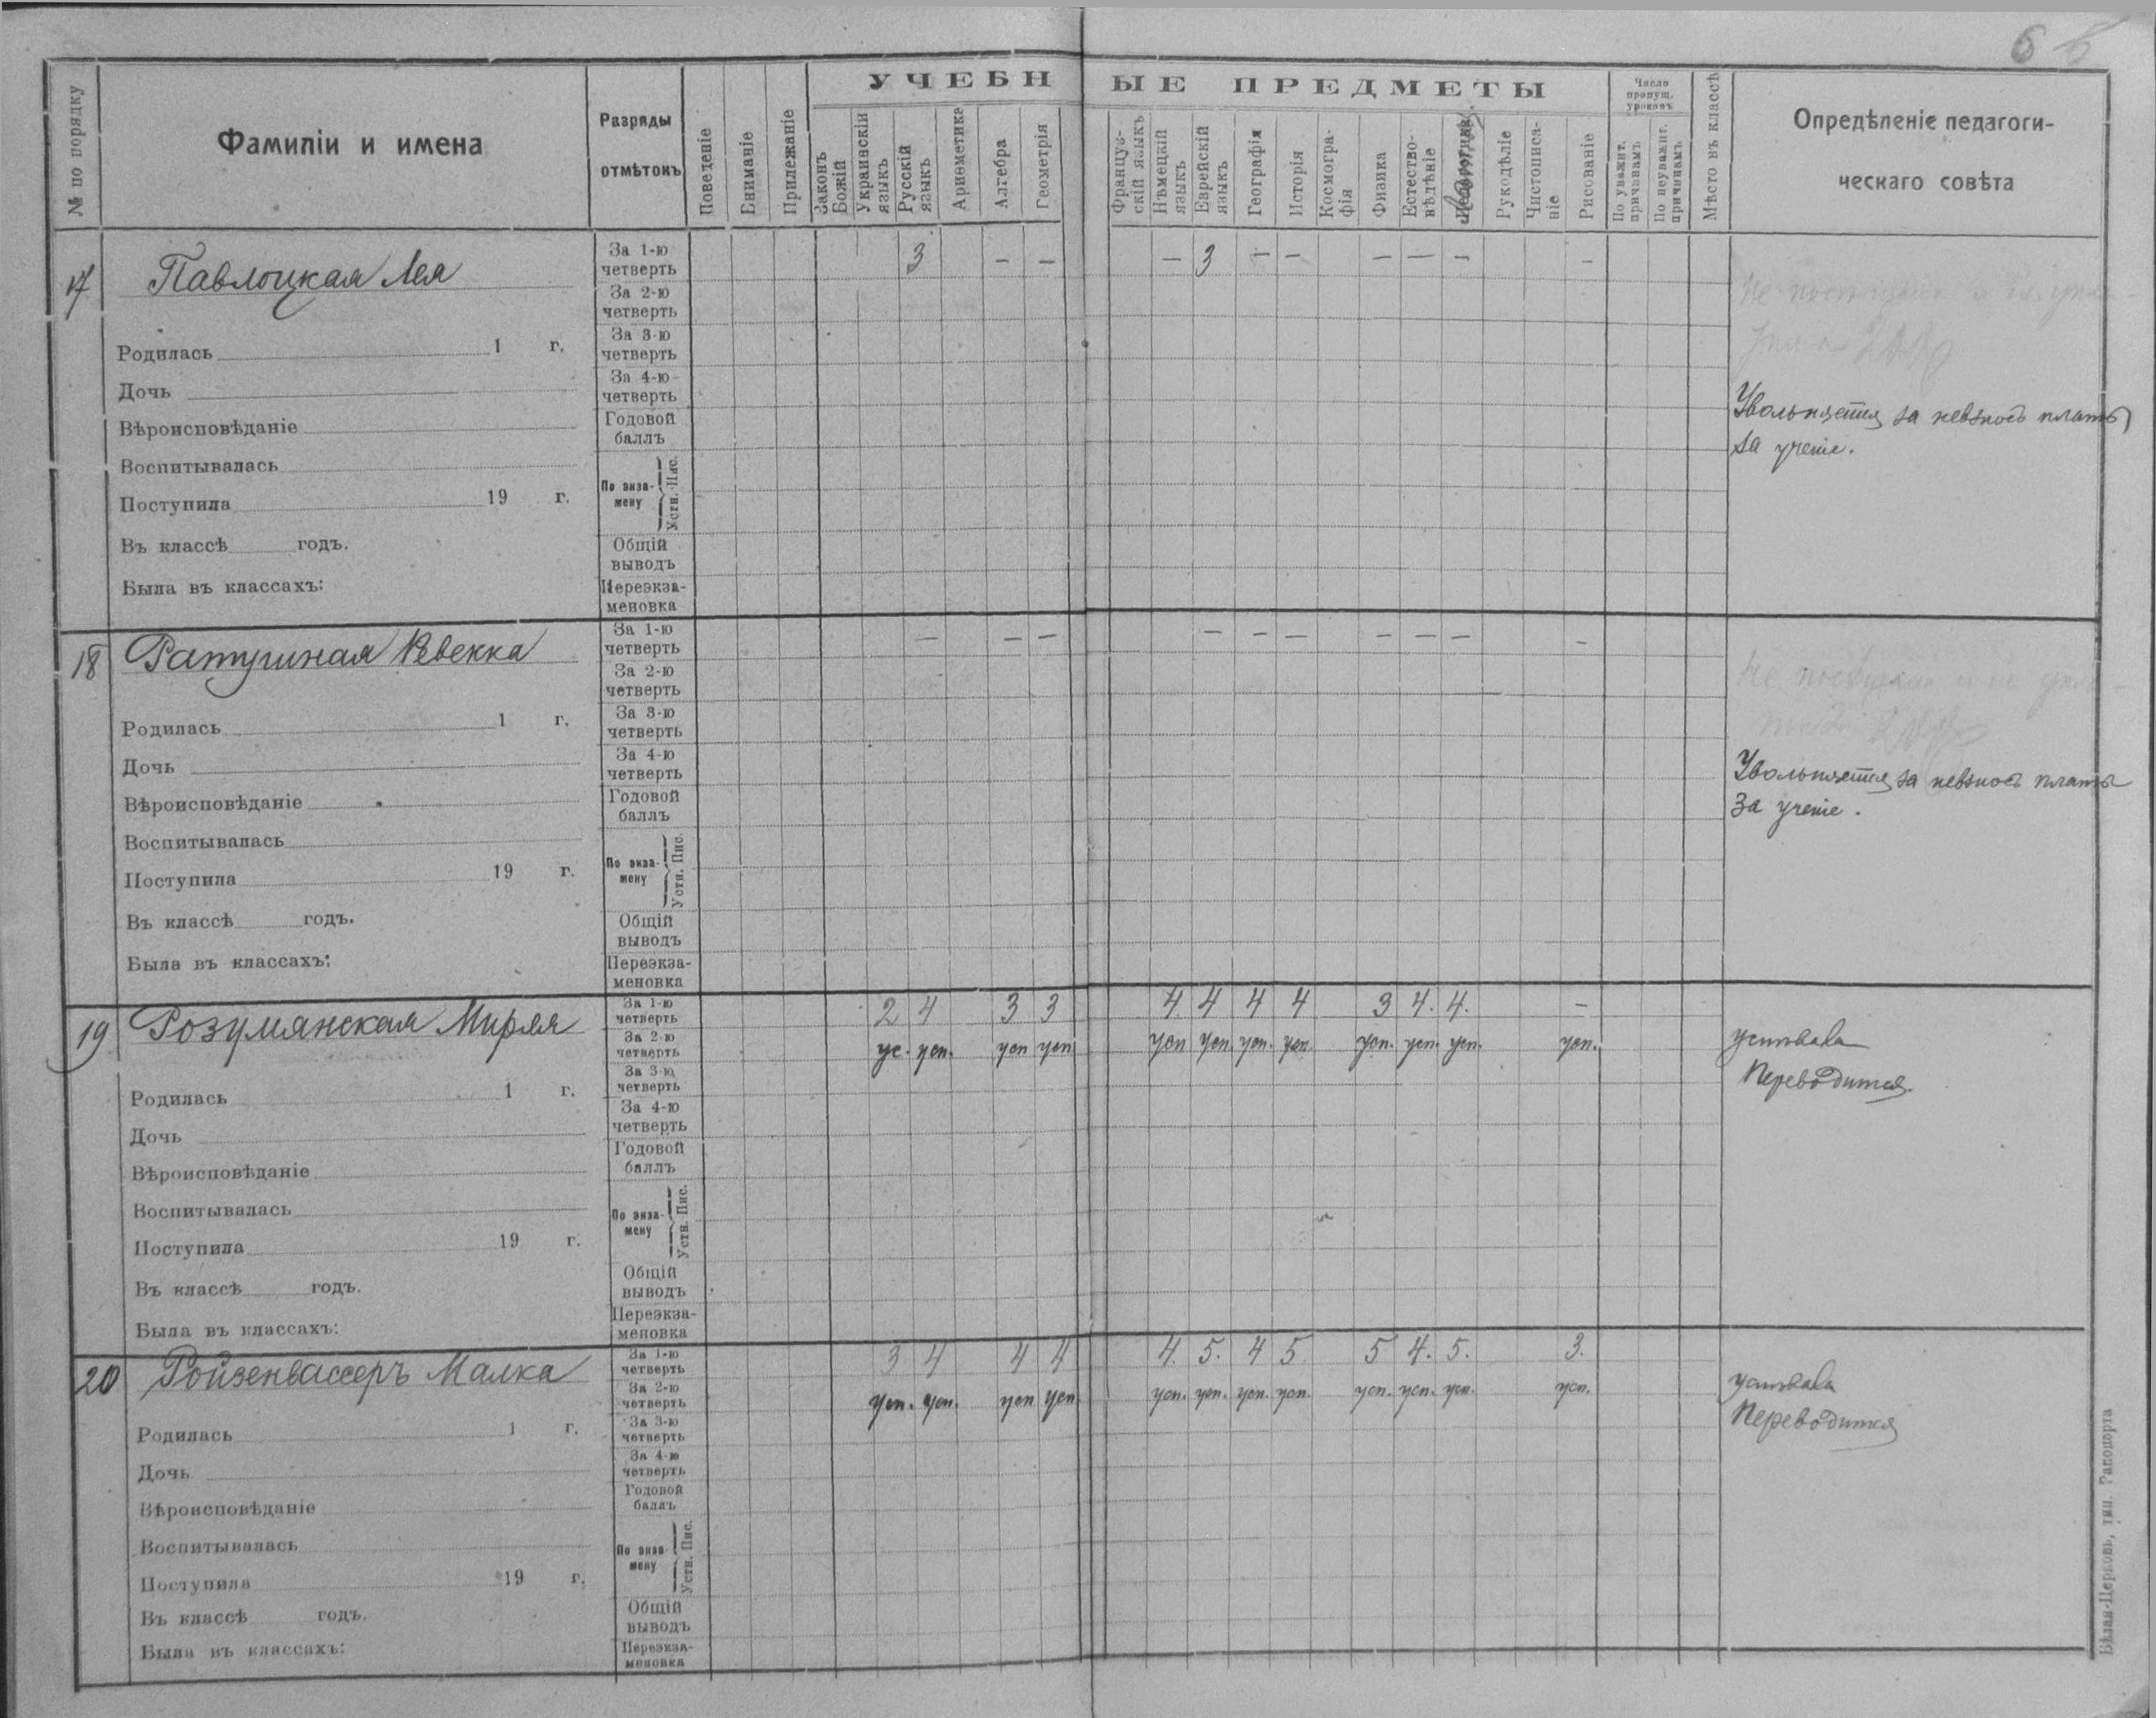 6
УЧЕБНЫЕ ПРЕДМЕТЫ
№ по порядку
Фамиліи и имена
Разряды
отмѣтокъ
Поведеніе
Вниманіе
Прилежаніе
Законъ Божій
Украинскій языкъ
Русскій языкъ
Ариѳметика
Алгебра
Геометрія
Француз-
скій языкъ
Нѣмецкій языкъ
Еврейскій языкъ
Географія
Исторія
Космогра-
фія
Физика
Естество-
вѣдѣніе
Рукодѣліе
Чистописа-
ніе
Рисованіе
Число
пропущ.
уроковъ
По уважит.
причинамъ
По неуважит.
причинамъ
Мѣсто въ классѣ
Опредѣленіе педагоги-
ческаго совѣта
17 Павлоцкая Лея
Родилась 1 г.
Дочь
Вѣроисповѣданіе
Воспитывалась
Поступила 19 г.
Въ классѣ годъ.
Была въ классахъ:
За 1-ю четверть 3 — — — 3 — — — — — —
За 2-ю четверть
За 3-ю четверть
За 4-ю четверть
Годовой баллъ
По экза-
мену Устн. Пис.
Общій выводъ
Переэкза-
меновка
Увольняется за невзносъ платы
за ученіе.
18 Ратушная Ревекка
Родилась 1 г.
Дочь
Вѣроисповѣданіе
Воспитывалась
Поступила 19 г.
Въ классѣ годъ.
Была въ классахъ:
За 1-ю четверть — — — — — — — — — —
За 2-ю четверть
За 3-ю четверть
За 4-ю четверть
Годовой баллъ
По экза-
мену Устн. Пис.
Общій выводъ
Переэкза-
меновка
Увольняется за невзносъ платы
за ученіе.
19 Розумянская Миряя
Родилась 1 г.
Дочь
Вѣроисповѣданіе
Воспитывалась
Поступила 19 г.
Въ классѣ годъ.
Была въ классахъ:
За 1-ю четверть 2 4 3 3 4. 4 4 4 3 4. 4. —
За 2-ю четверть ус. усп. усп усп усп усп. усп. усп. усп. усп. усп. усп.
За 3-ю четверть
За 4-ю четверть
Годовой баллъ
По экза-
мену Устн. Пис.
Общій выводъ
Переэкза-
меновка
успѣвала
Переводится.
20 Ройзенвассеръ Малка
Родилась 1 г.
Дочь
Вѣроисповѣданіе
Воспитывалась
Поступила 19 г.
Въ классѣ годъ.
Была въ классахъ:
За 1-ю четверть 3 4 4 4 4. 5. 4 5. 5 4. 5. 3.
За 2-ю четверть усп. усп. усп усп усп. усп. усп. усп. усп. усп. усп. усп.
За 3-ю четверть
За 4-ю четверть
Годовой баллъ
По экза-
мену Устн. Пис.
Общій выводъ
Переэкза-
меновка
успѣвала
Переводится
Бѣлая-Церковь, тип. Рапопорта